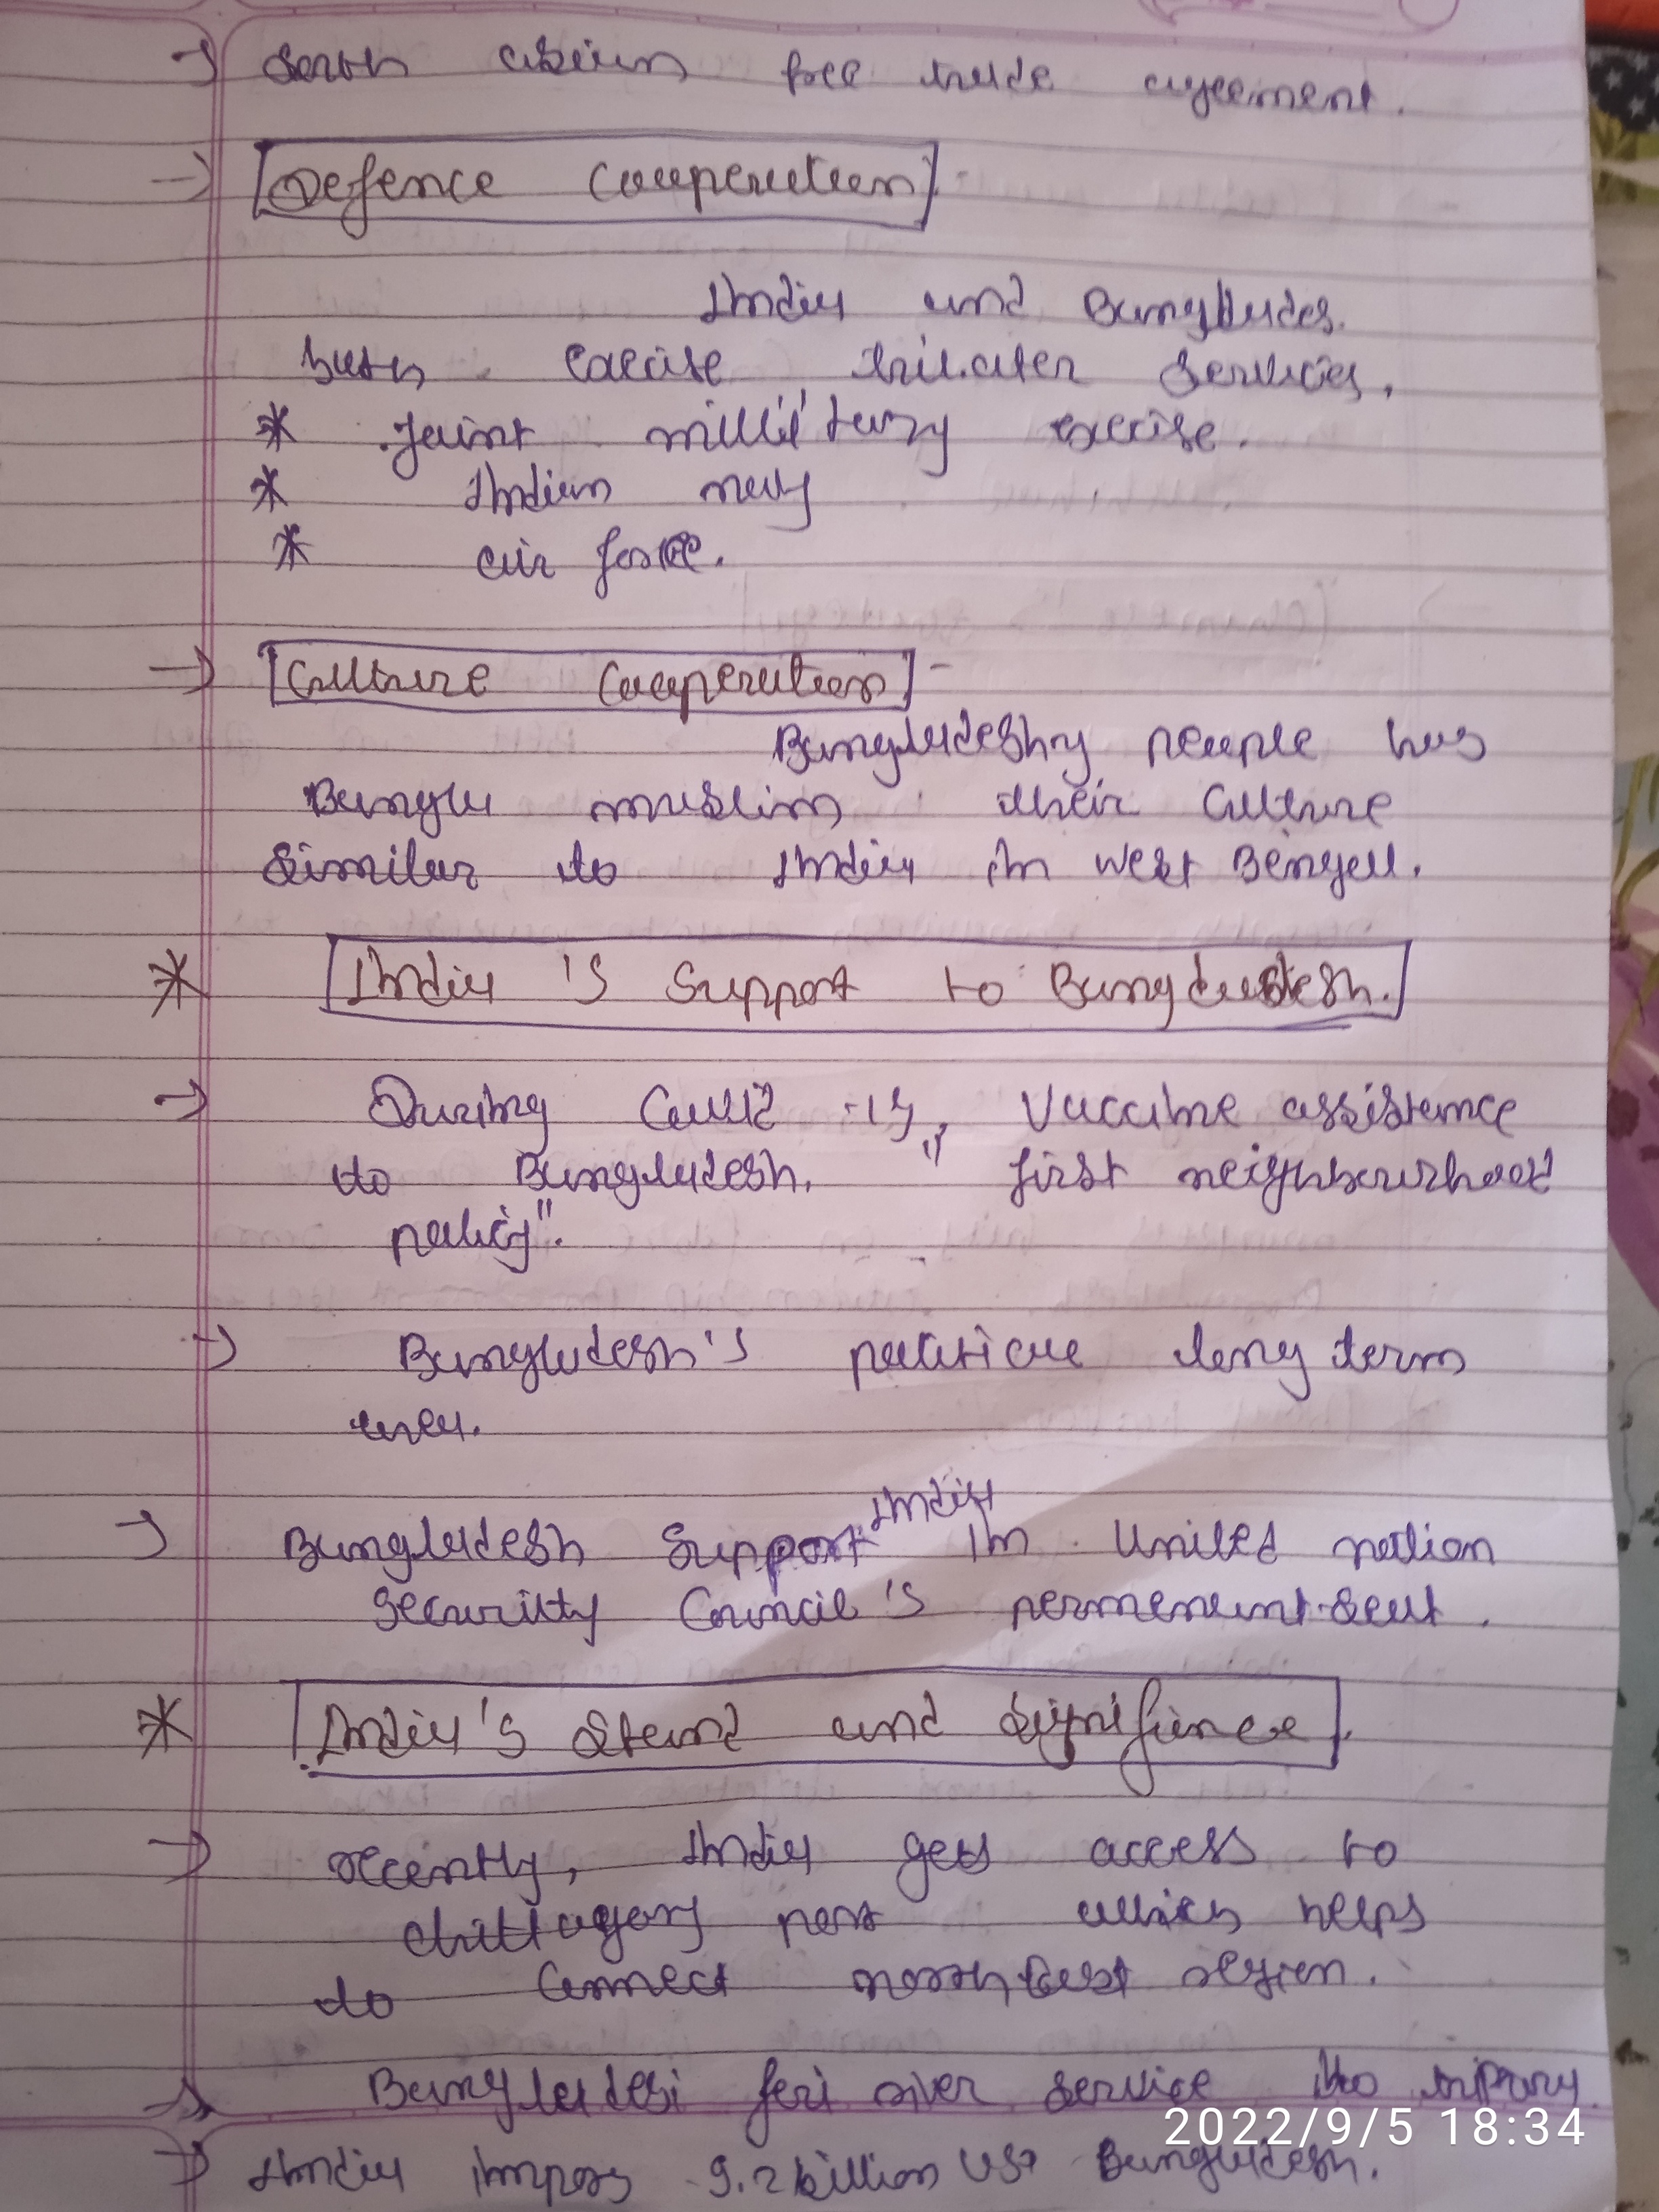 → South asian free trade agreement.
→ Defence Cooperation :-
India and Bangladdes.
both excise services,
* Joint millitary excerise.
* Indian navy
* air force.
→ Culture Cooperation -
Bangladeshy people has
Bangla muslim their Culture
Similar to India in west Bengal.
* India 's Support to Bangladesh.
→ During Covid -19, Vaccine assistance
to Bangladesh. " first neighbourhood
policy".
→ Bangladesh's long term
area.
India
→ Bangladesh Support in United nation
Security Council's permenent seat.
* India's Stand and Signifiance.
→ recently, India gets access to
chittagong port which helps
to Connect north East region.
→ Bangladesi feri river service to
→ India 9.2 billion Bangladesh.
2022/9/5 18:34